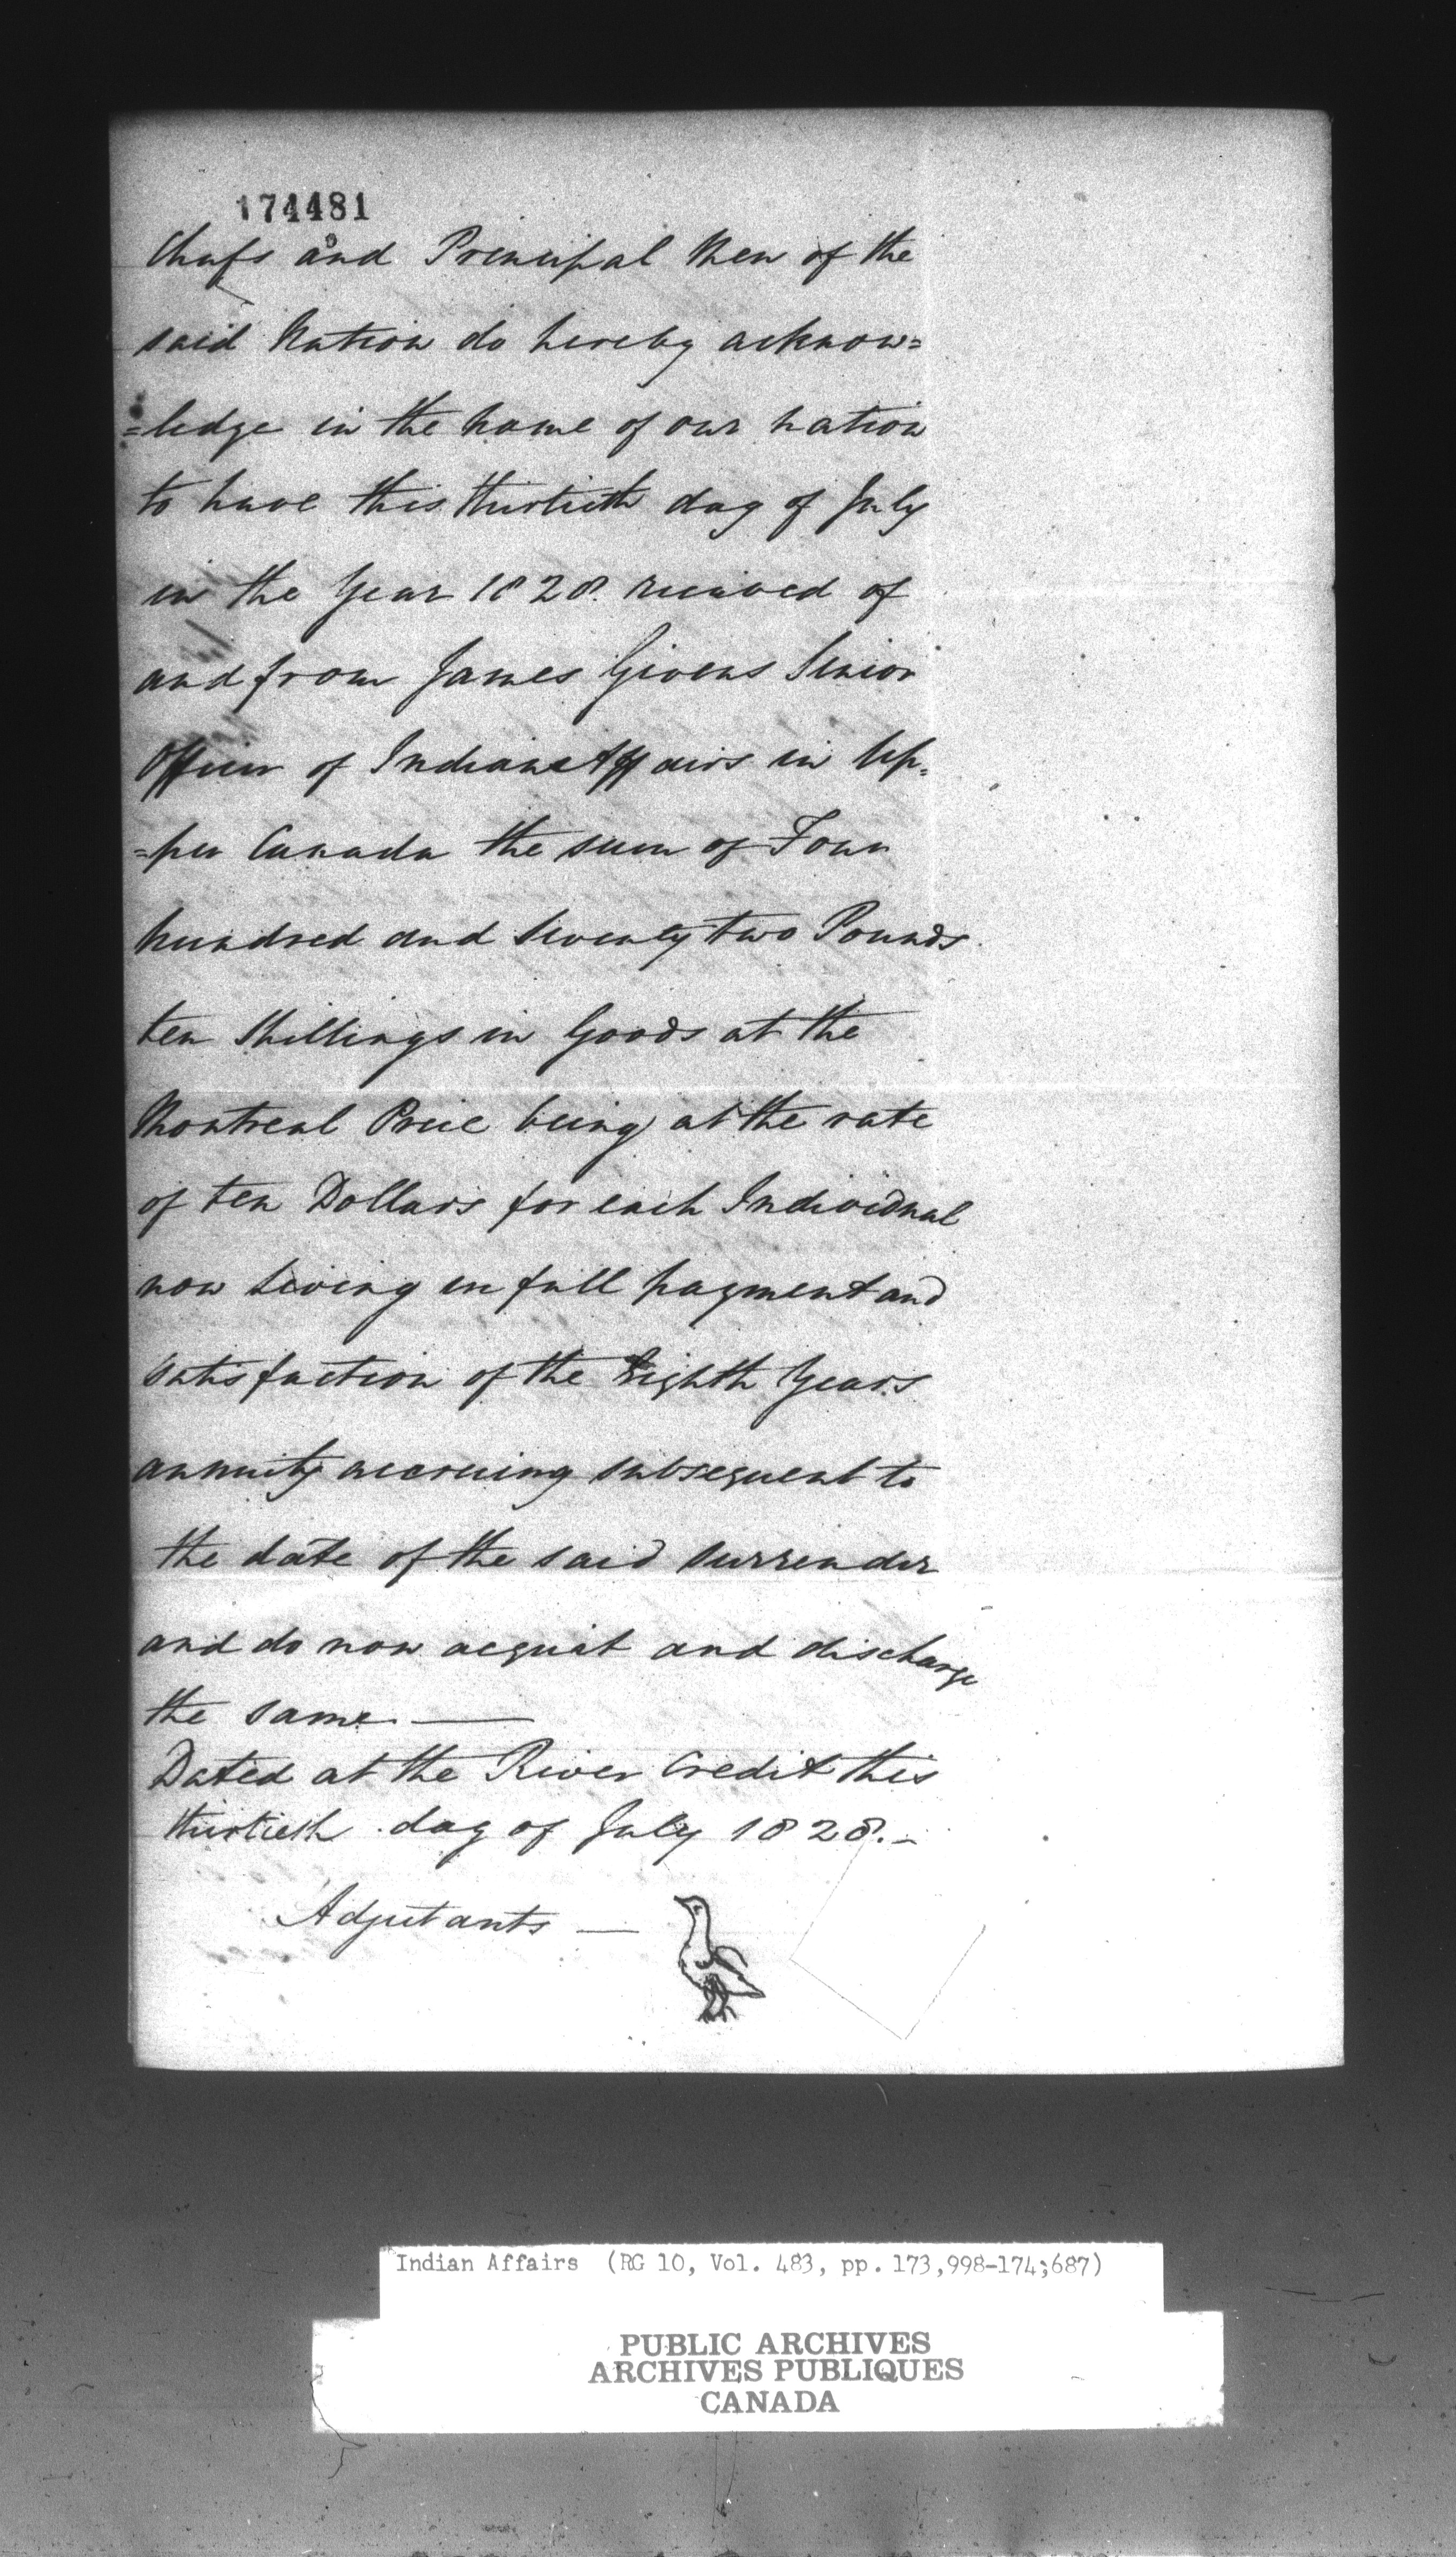 174481
Chiefs and Principal Men of the
said Nation do hereby acknow=
=ledge in the name of our nation
to have this thirtieth day of July
in the Year 1828. received of
and from James Givens Senior
Officer of Indian Affairs in Up=
=per Canada the sum of Four
hundred and seventy two Pounds
ten Shillings in Goods at the
Montreal Price being at the rate
of ten Dollars for each Individual
now living in full payment and
satisfaction of the Eighth Years
annuity accruing subsequent to
the date of the said surrender
and do now acquit and discharge
the same. —
Dated at the River Credit this
thirtieth day of July 1828. –
Adjutants —
Indian Affairs (RG 10, Vol. 483, pp. 173,998-174;687)
PUBLIC ARCHIVES
ARCHIVES PUBLIQUES
CANADA